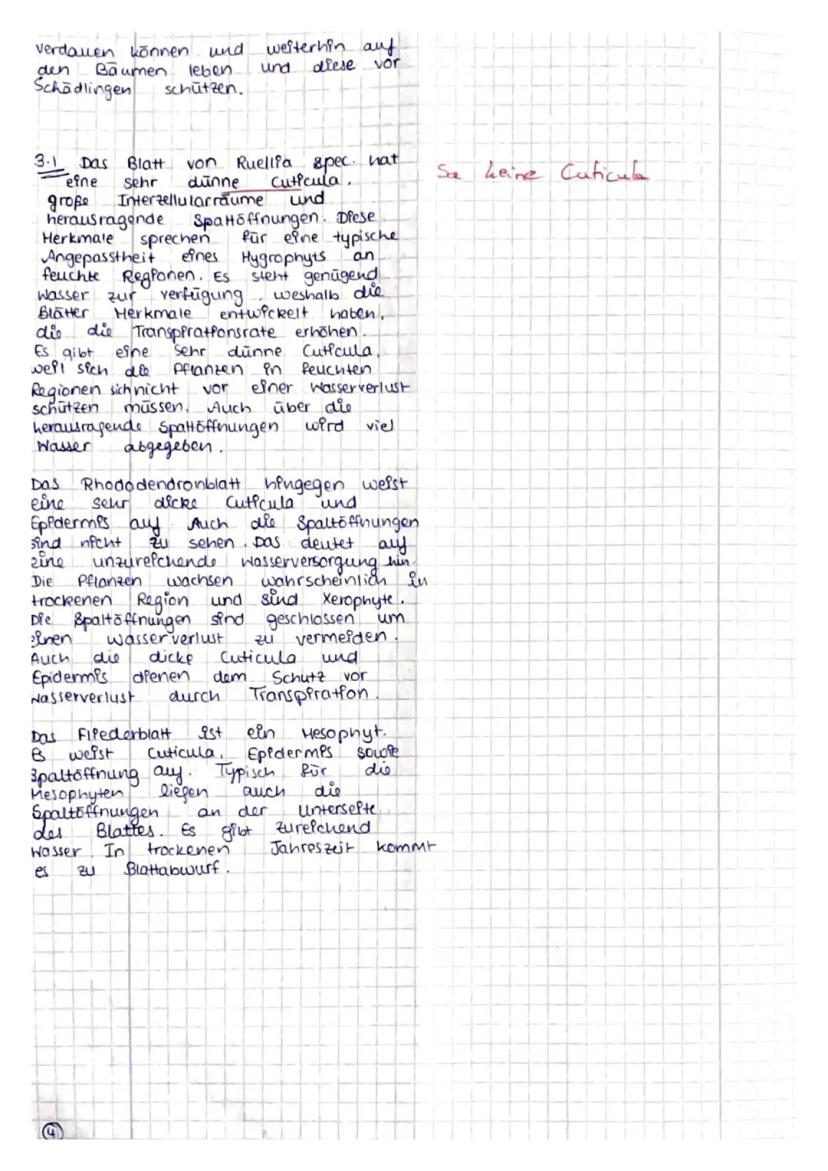 verdauen können und weiterhin auf
den Bäumen leben und diese vor
Schädlingen schützen.
3.1 Das Blatt von Ruellia spec. hat
eine sehr dünne Cuticula,
große Interzellularräume und
herausragende Spaltöffnungen. Diese
Merkmale sprechen für eine typische
Angepasstheit eines Hygrophyts an
feuchte Regionen. Es steht genügend
Wasser zur verfügung, weshalb die
Blätter Merkmale entwickelt haben,
die die Transpirationsrate erhöhen.
Es gibt eine sehr dünne Cuticula,
weil sich die Pflanzen in feuchten
Regionen sich nicht vor einer Wasserverlust
schützen müssen. Auch über die
herausragende Spaltöffnungen wird viel
Wasser abgegeben.
Das Rhododendronblatt hingegen weist
eine sehr dicke Cuticula und
Epidermis auf. Auch die Spaltöffnungen
sind nicht zu sehen. Das deutet auf
eine unzureichende Wasserversorgung hin.
Die Pflanzen wachsen wahrscheinlich in
trockenen Region und sind Xerophyte.
Die Spaltöffnungen sind geschlossen um
einen wasserverlust zu vermeiden.
Auch die dicke Cuticula und
Epidermis dienen dem Schutz vor
Wasserverlust durch Transpiration.
Das Fliederblatt ist ein Mesophyt.
Es weist Cuticula, Epidermis sowie
Spaltöffnung auf. Typisch für die
Mesophyten liegen auch die
Spaltöffnungen an der Unterseite
des Blattes. Es gibt zureichend
Wasser. In trockenen Jahreszeit kommt
es zu Blattabwurf.
keine Cuticula
4